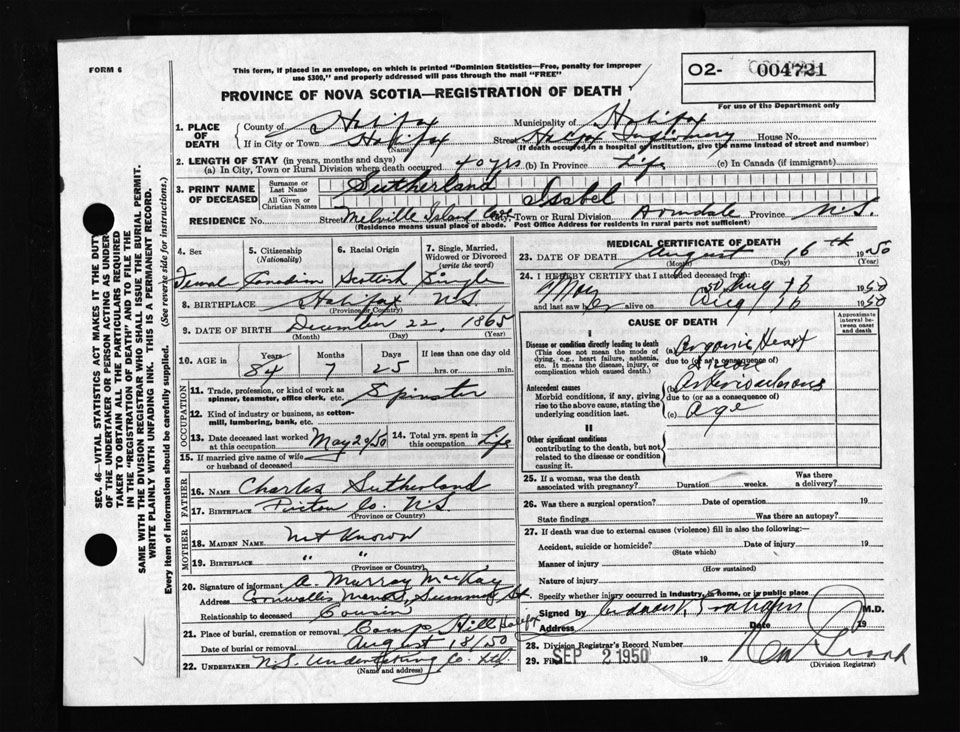 FORM 6
This form, if placed in an envelope, on which is printed "Dominion Statistics—Free, penalty for improper
use $300," and properly addressed will pass through the mail "FREE"
PROVINCE OF NOVA SCOTIA—REGISTRATION OF DEATH
02- 004721
For use of the Department only
1. PLACE OF DEATH County of Halifax Municipality of Halifax
If in City or Town Halifax (Name) Street Halifax Infirmary House No.
(If death occurred in a hospital or institution, give the name instead of street and number)
2. LENGTH OF STAY (in years, months and days)
(a) In City, Town or Rural Division where death occurred 40 yrs (b) In Province Life (c) In Canada (if immigrant)
3. PRINT NAME OF DECEASED Surname or Last Name Sutherland
All Given or Christian Names Isabel
RESIDENCE No. Street Melville Island City, Town or Rural Division Armdale Province N.S.
(Residence means usual place of abode. Post Office Address for residents in rural parts not sufficient)
SEC. 46—VITAL STATISTICS ACT MAKES IT THE DUTY
OF THE UNDERTAKER OR PERSON ACTING AS UNDER-
TAKER TO OBTAIN ALL THE PARTICULARS REQUIRED
IN THE "REGISTRATION OF DEATH" AND TO FILE THE
SAME WITH THE DIVISION REGISTRAR WHO SHALL ISSUE THE BURIAL PERMIT.
WRITE PLAINLY WITH UNFADING INK. THIS IS A PERMANENT RECORD.
Every item of information should be carefully supplied. (See reverse side for instructions.)
4. Sex
Female
5. Citizenship (Nationality)
Canadian
6. Racial Origin
Scottish
7. Single, Married, Widowed or Divorced (write the word)
Single
8. BIRTHPLACE Halifax N.S.
(Province or Country)
9. DATE OF BIRTH December 22, 1865
(Month) (Day) (Year)
10. AGE in Years 84 Months 7 Days 25 If less than one day old hrs. or min.
OCCUPATION
11. Trade, profession, or kind of work as spinner, teamster, office clerk, etc. Spinster
12. Kind of industry or business, as cotton-mill, lumbering, bank, etc.
13. Date deceased last worked at this occupation May 20/50 14. Total yrs. spent in this occupation Life
15. If married give name of wife or husband of deceased
FATHER
16. NAME Charles Sutherland
17. BIRTHPLACE Pictou Co. N.S.
(Province or Country)
MOTHER
18. MAIDEN NAME Not Known
19. BIRTHPLACE " "
(Province or Country)
20. Signature of informant A. Murray MacKay
Address Cornwallis Manor, Summer St.
Relationship to deceased Cousin
21. Place of burial, cremation or removal Camp Hill Halifax
Date of burial or removal August 18/50
22. UNDERTAKER N.S. Undertaking Co. Ltd.
(Name and address)
MEDICAL CERTIFICATE OF DEATH
23. DATE OF DEATH August 16th 1950
(Month) (Day) (Year)
24. I HEREBY CERTIFY that I attended deceased from
May 50 Aug 16 1950
and last saw her alive on Aug 16 1950
CAUSE OF DEATH
Approximate interval between onset and death
I
Disease or condition directly leading to death
(This does not mean the mode of dying, e.g., heart failure, asthenia, etc. It means the disease, injury, or complication which caused death.)
(a) Organic Heart
due to (or as a consequence of)
Antecedent causes
Morbid conditions, if any, giving rise to the above cause, stating the underlying condition last.
(b) Arteriosclerosis
due to (or as a consequence of)
(c) Age
II
Other significant conditions
contributing to the death, but not related to the disease or condition causing it.
25. If a woman, was the death associated with pregnancy? Duration weeks. Was there a delivery?
26. Was there a surgical operation? Date of operation 19
State findings Was there an autopsy?
27. If death was due to external causes (violence) fill in also the following:—
Accident, suicide or homicide? (State which) Date of injury 19
Manner of injury (How sustained)
Nature of injury
Specify whether injury occurred in industry, in home, or in public place
Signed by M.D.
Address Date 19
28. Division Registrar's Record Number
29. Filed SEP 2 1950 19
(Division Registrar)